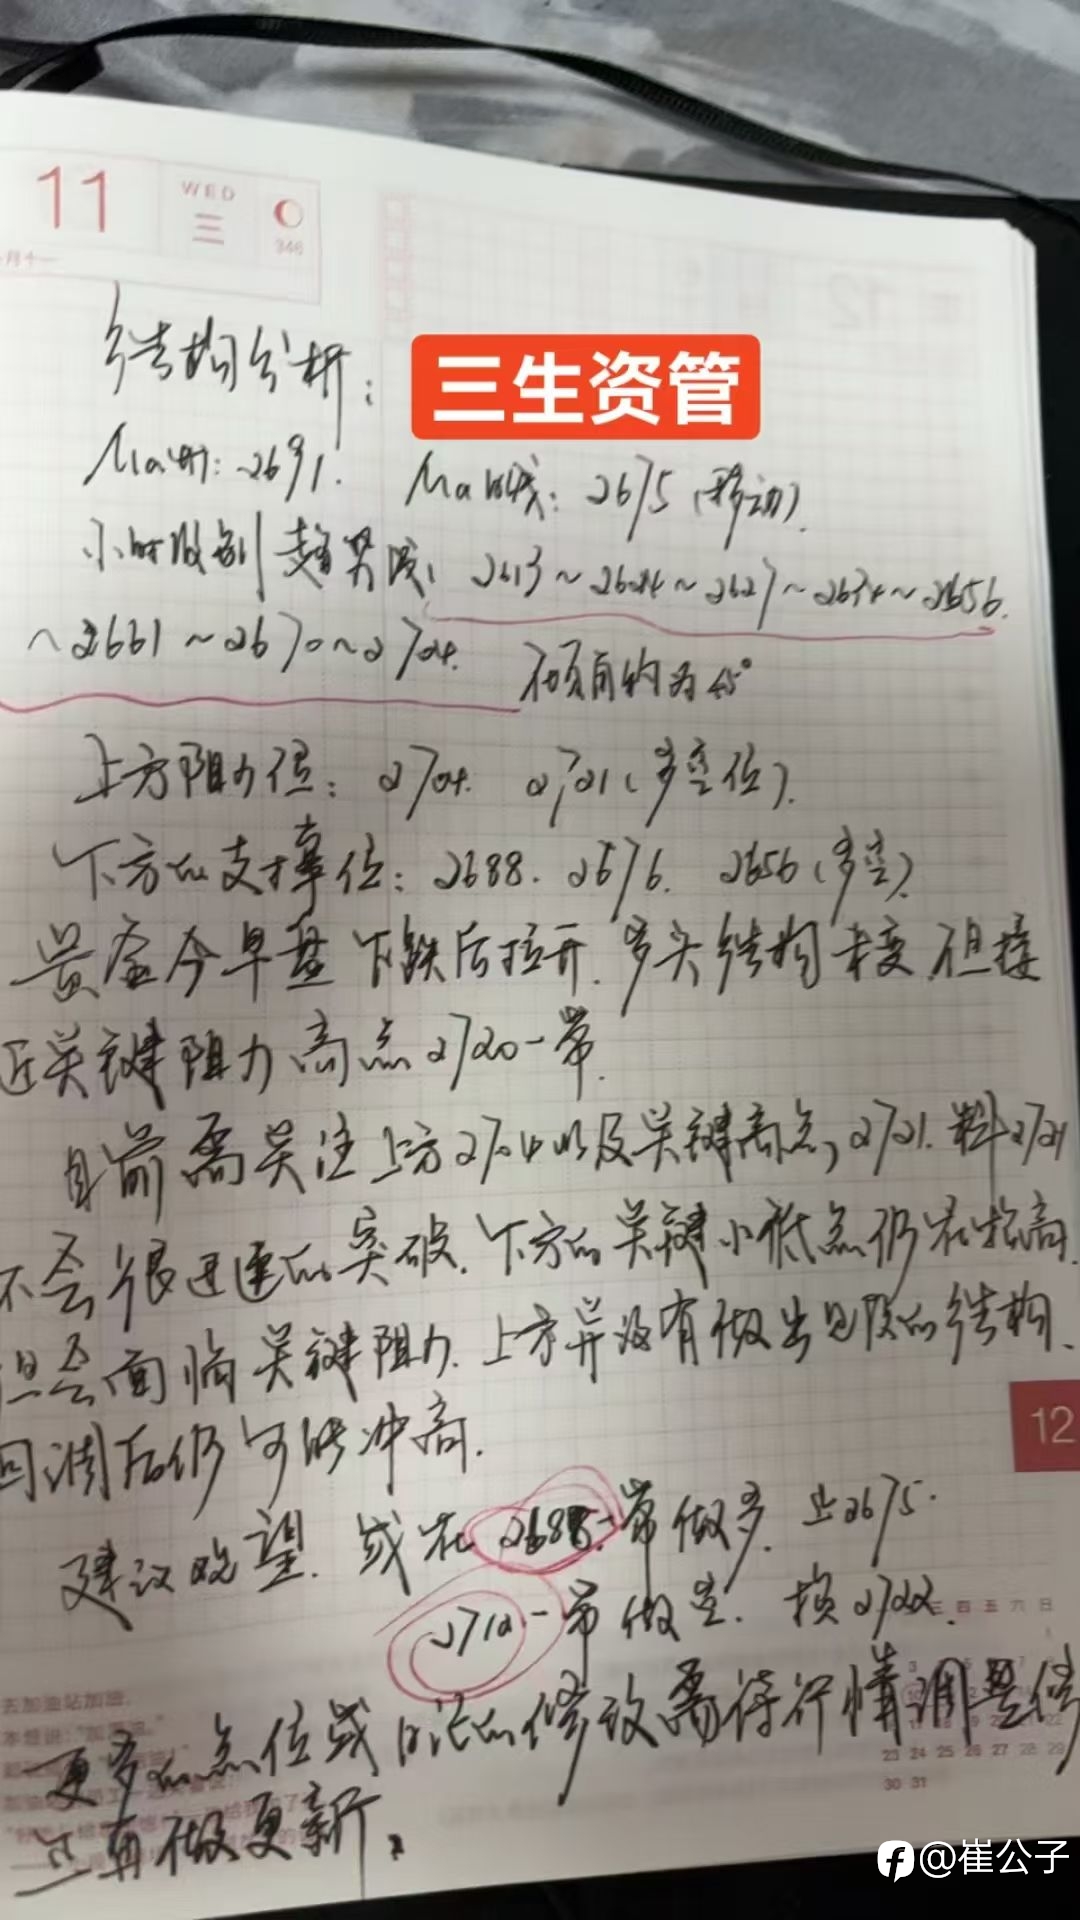 11 WED 三 346
月十一
结构分析：
三生资管
Ma 4h：2691. Ma 日线：2675（移动）.
小时级别趋势段：2613～2624～2627～2634～2656.
～2661～2670～2704. 倾角约为45°
上方阻力位：2704. 2721（多空位）.
下方的支撑位：2688. 2676. 2656（多空）.
黄金今早盘下跌后拉开.多头结构未变 但接
近关键阻力高点2720一带.
目前需关注上方2704以及关键高点，2721. 料2721
不会很迅速的突破.下方的关键小低点仍在抬高.
但会面临关键阻力.上方并没有做出见顶的结构.
回调后仍可能冲高.
12
建议观望. 或在2688一带做多. 止2675.
2712一带做空. 损2722.
三 四 五 六 日
更多的点位或的修改需待行情调整修
正再做更新.
去加油站加油，
23 24 25 26 27 28 29
30 31
@崔公子